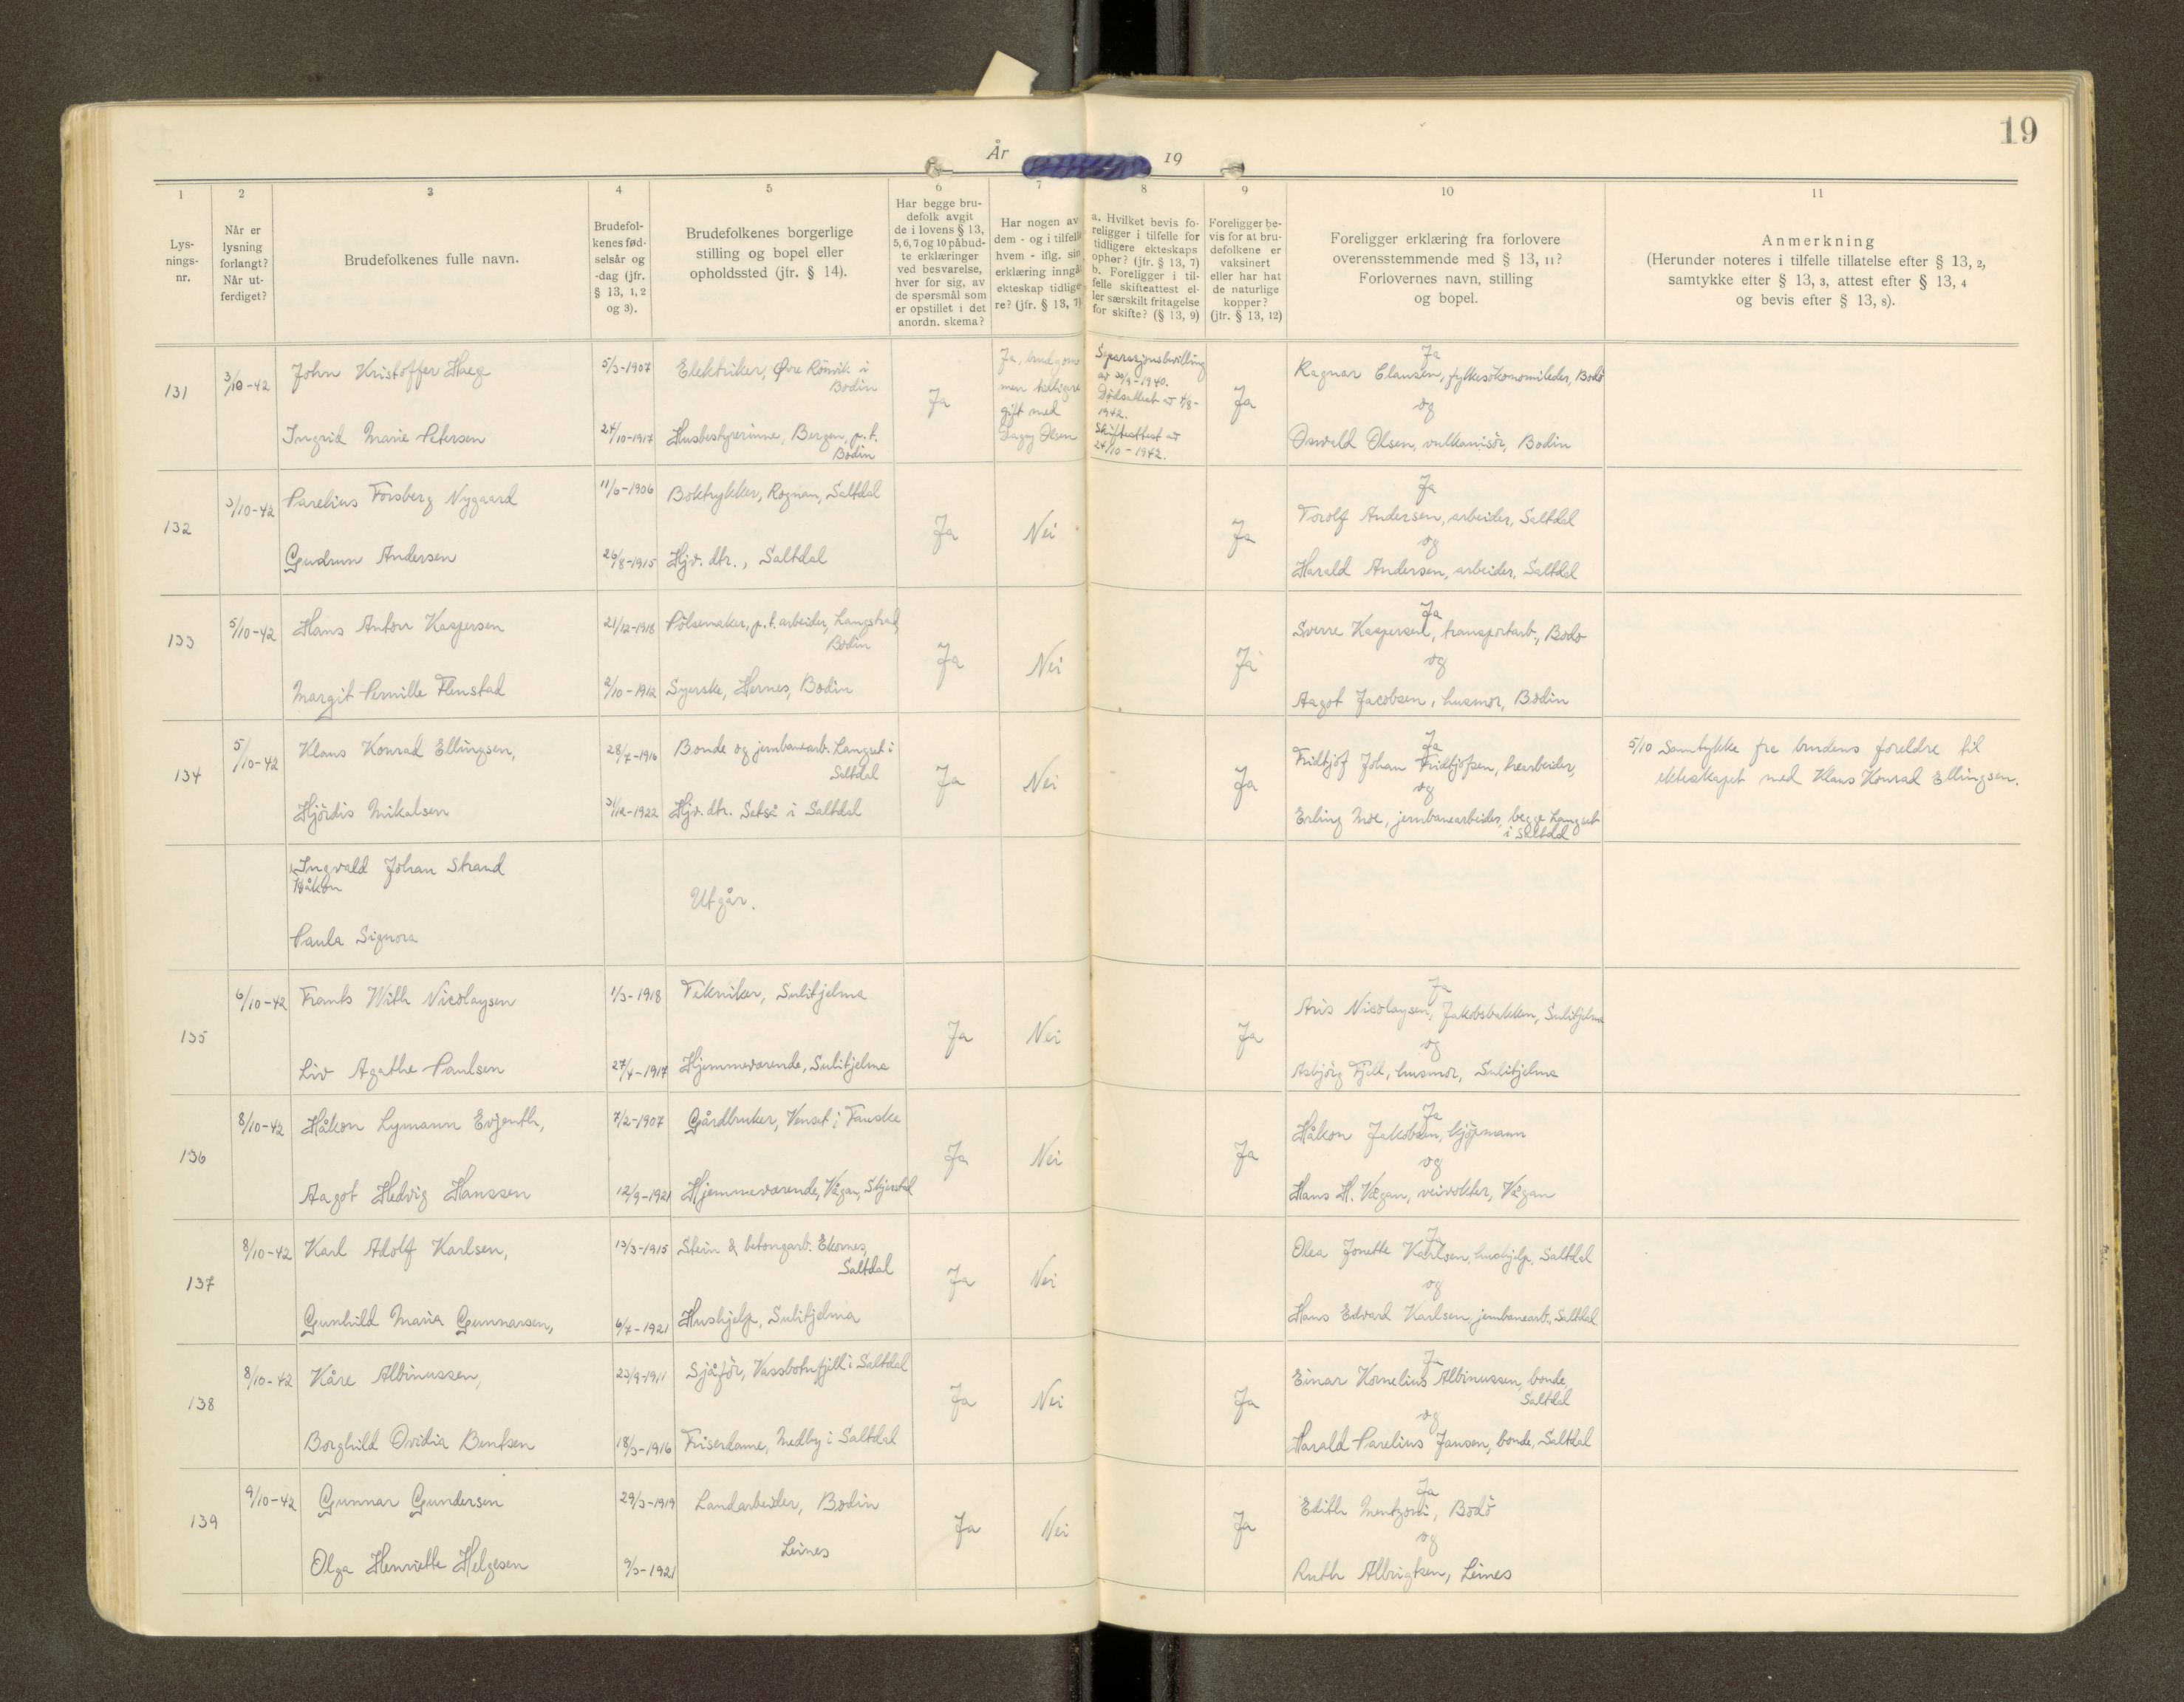 19
År 19
1 2 3 4 5 6 7 8 9 10 11
Lys-
nings-
nr.
Når er
lysning
forlangt?
Når ut-
ferdiget?
Brudefolkenes fulle navn.
Brudefol-
kenes fød-
selsår og
-dag (jfr.
§ 13, 1, 2
og 3).
Brudefolkenes borgerlige
stilling og bopel eller
opholdssted (jfr. § 14).
Har begge bru-
defolk avgit
de i lovens § 13,
5, 6, 7 og 10 påbud-
te erklæringer
ved besvarelse,
hver for sig, av
de spørsmål som
er opstillet i det
anordn. skema?
Har nogen av
dem - og i tilfelle
hvem - iflg. sin
erklæring inngåt
ekteskap tidlige-
re? (jfr. § 13, 7)
a. Hvilket bevis fo-
religger i tilfelle for
tidligere ekteskaps
ophør? (jfr. § 13, 7)
b. Foreligger i til-
felle skifteattest el-
ler særskilt fritagelse
for skifte? (§ 13, 9)
Foreligger be-
vis for at bru-
defolkene er
vaksinert
eller har hat
de naturlige
kopper?
(jfr. § 13, 12)
Foreligger erklæring fra forlovere
overensstemmende med § 13, 11?
Forlovernes navn, stilling
og bopel.
Anmerkning
(Herunder noteres i tilfelle tillatelse efter § 13, 2,
samtykke efter § 13, 3, attest efter § 13, 4
og bevis efter § 13, 8).
131
3/10-42
John Kristoffer Haeg
Ingrid Marie Petersen
5/3-1907
24/10-1917
Elektriker, Øvre Rönvik i
Bodin
Husbestyrerinne, Bergen, p.t.
Bodin
Ja
Ja, brudgom
men tidligere
gift med
Dagny Olsen
Separasjonsbevilling
av 30/9-1940.
Dødsattest av 4/8-
1942.
Skifteattest av
24/10-1942.
Ja
Ja
Ragnar Clausen, fylkesökonomileder, Bodö
og
Oswald Olsen, vulkanisör, Bodin
132
3/10-42
Parelius Forsberg Nygaard
Gudrun Andersen
11/6-1906
26/8-1915
Boktrykker, Rognan, Saltdal
Hjv. dtr., Saltdal
Ja
Nei
Ja
Ja
Torolf Andersen, arbeider, Saltdal
og
Harald Andersen, arbeider, Saltdal
133
5/10-42
Hans Anton Kaspersen
Margit Pernille Flenstad
21/12-1918
2/10-1912
Pölsemaker, p.t. arbeider, Langstrad,
Bodin
Syerske, Hernes, Bodin
Ja
Nei
Ja
Ja
Sverre Kaspersen, transportarb., Bodö
og
Aagot Jacobsen, husmor, Bodin
134
5/10-42
Klaus Konrad Ellingsen,
Hjördis Mikalsen
28/7-1916
31/12-1922
Bonde og jernbanearb. Langset i
Saltdal
Hjv. dtr. Setså i Saltdal
Ja
Nei
Ja
Ja
Fridtjof Johan Fridtjofsen, trearbeider,
og
Erling Moe, jernbanearbeider, begge Langset
i Saltdal
5/10 Samtykke fra brudens foreldre til
ekteskapet med Klaus Konrad Ellingsen.
Ingvald Johan Strand
Håkon
Paula Signora
Utgår.
135
6/10-42
Frants With Nicolaysen
Liv Agathe Paulsen
1/3-1918
27/4-1917
Tekniker, Sulitjelma
Hjemmeværende, Sulitjelma
Ja
Nei
Ja
Ja
Aris Nicolaysen, Jakobsbakken, Sulitjelma
og
Asbjörg Fjell, husmor, Sulitjelma
136
8/10-42
Håkon Lymann Evjenth,
Aagot Hedvig Hanssen
7/2-1907
12/9-1921
Gårdbruker, Venset i Fauske
Hjemmeværende, Vågan, Skjerstad
Ja
Nei
Ja
Ja
Håkon Jakobsen, kjöpmann
og
Hans H. Vågan, veivokter, Vågan
137
8/10-42
Karl Adolf Karlsen,
Gunhild Maria Gunnarsen,
13/3-1915
6/7-1921
Stein & betongarb. Ekornes,
Saltdal
Hushjelp, Sulitjelma
Ja
Nei
Ja
Olea Jonette Karlsen, hushjelp, Saltdal
og
Hans Edvard Karlsen, jernbanearb., Saltdal
138
8/10-42
Kåre Albinussen,
Borghild Ovidia Bentsen
23/9-1911
18/3-1916
Sjåför, Vassbotnfjell i Saltdal
Friserdame, Medby i Saltdal
Ja
Nei
Ja
Ja
Einar Kornelius Albinussen, bonde,
Saltdal
og
Harald Parelius Jansen, bonde, Saltdal
139
9/10-42
Gunnar Gundersen
Olga Henriette Helgesen
29/3-1919
9/3-1921
Landarbeider, Bodin
Leines
Ja
Nei
Ja
Ja
Edith Mentzoni, Bodö
og
Ruth Albrigtsen, Leines